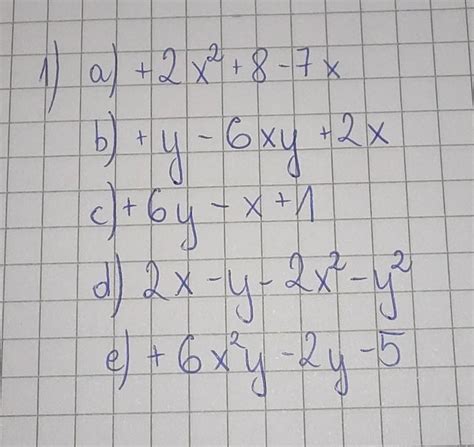 1) a) +2x²+8-7x
b) +y-6xy+2x
c) +6y-x+1
d) 2x-y-2x²-y²
e) +6x²y-2y-5